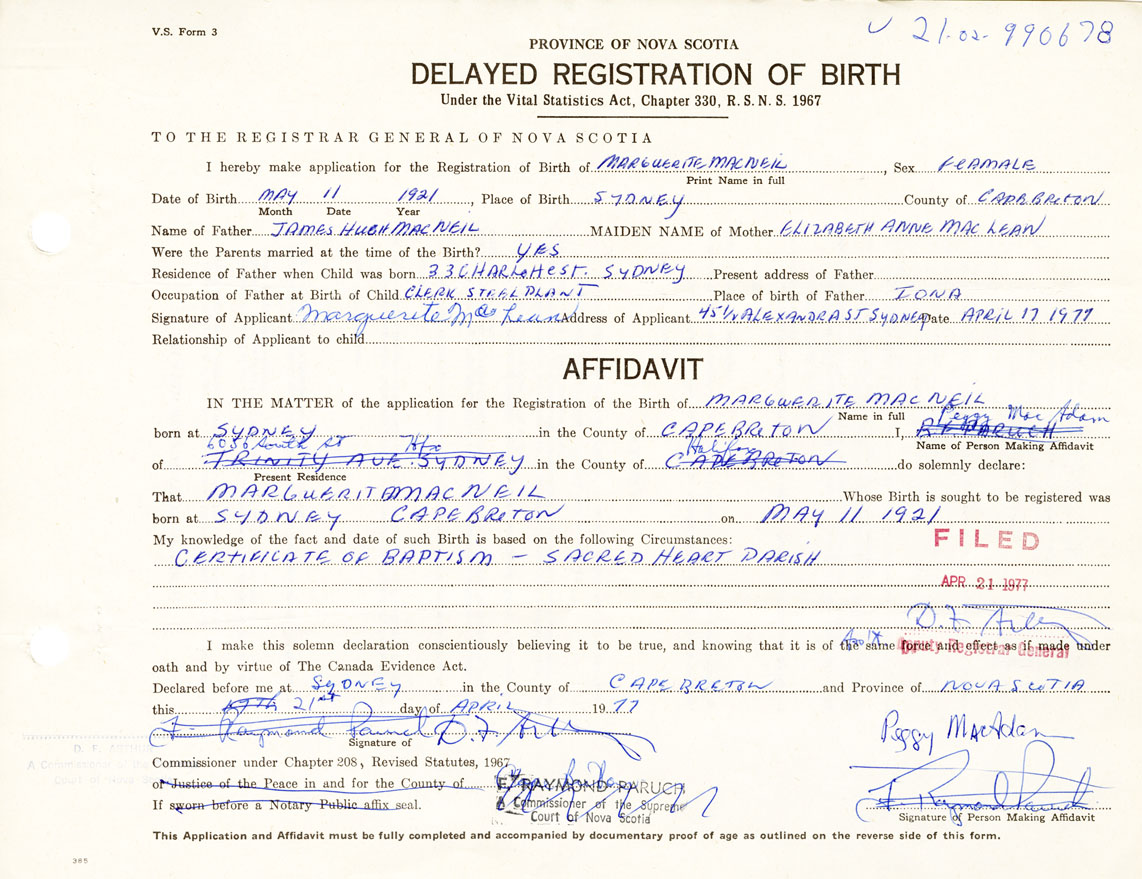 V.S. Form 3
21-02-990678
PROVINCE OF NOVA SCOTIA
DELAYED REGISTRATION OF BIRTH
Under the Vital Statistics Act, Chapter 330, R.S.N.S. 1967
TO THE REGISTRAR GENERAL OF NOVA SCOTIA
I hereby make application for the Registration of Birth of MARGUERITE MACNEIL, Sex FEAMALE
Print Name in full
Date of Birth MAY 11 1921, Place of Birth SYDNEY County of CAPE BRETON
Month Date Year
Name of Father JAMES HUGH MACNEIL MAIDEN NAME of Mother ELIZABETH ANNE MACLEAN
Were the Parents married at the time of the Birth? YES
Residence of Father when Child was born 33 CHARLOTTE ST. SYDNEY Present address of Father
Occupation of Father at Birth of Child CLERK STEEL PLANT Place of birth of Father IONA
Signature of Applicant Marguerite MacLean Address of Applicant 45½ ALEXANDRA ST SYDNEY Date APRIL 17 1977
Relationship of Applicant to child
AFFIDAVIT
IN THE MATTER of the application for the Registration of the Birth of MARGUERITE MACNEIL
Name in full Peggy MacAdam
born at SYDNEY in the County of CAPE BRETON I, PARUCH
South St Hfx Halifax Name of Person Making Affidavit
of TRINITY AVE. SYDNEY in the County of CAPE BRETON do solemnly declare:
Present Residence
That MARGUERITE MACNEIL Whose Birth is sought to be registered was
born at SYDNEY CAPE BRETON on MAY 11 1921
My knowledge of the fact and date of such Birth is based on the following Circumstances:
CERTIFICATE OF BAPTISM - SACRED HEART PARISH
FILED
APR 21 1977
D.F. Arthur
I make this solemn declaration conscientiously believing it to be true, and knowing that it is of the same force and effect as if made under
Deputy Registrar General
oath and by virtue of The Canada Evidence Act.
Declared before me at SYDNEY in the County of CAPE BRETON and Province of NOVA SCOTIA
this 17th 21st day of APRIL 1977
F. Raymond Paruch D.F. Arthur
Peggy MacAdam
Signature of
Commissioner under Chapter 208, Revised Statutes, 1967
or Justice of the Peace in and for the County of
F. RAYMOND PARUCH
If sworn before a Notary Public affix seal.
A Commissioner of the Supreme
Court of Nova Scotia
F. Raymond Paruch
Signature of Person Making Affidavit
This Application and Affidavit must be fully completed and accompanied by documentary proof of age as outlined on the reverse side of this form.
385